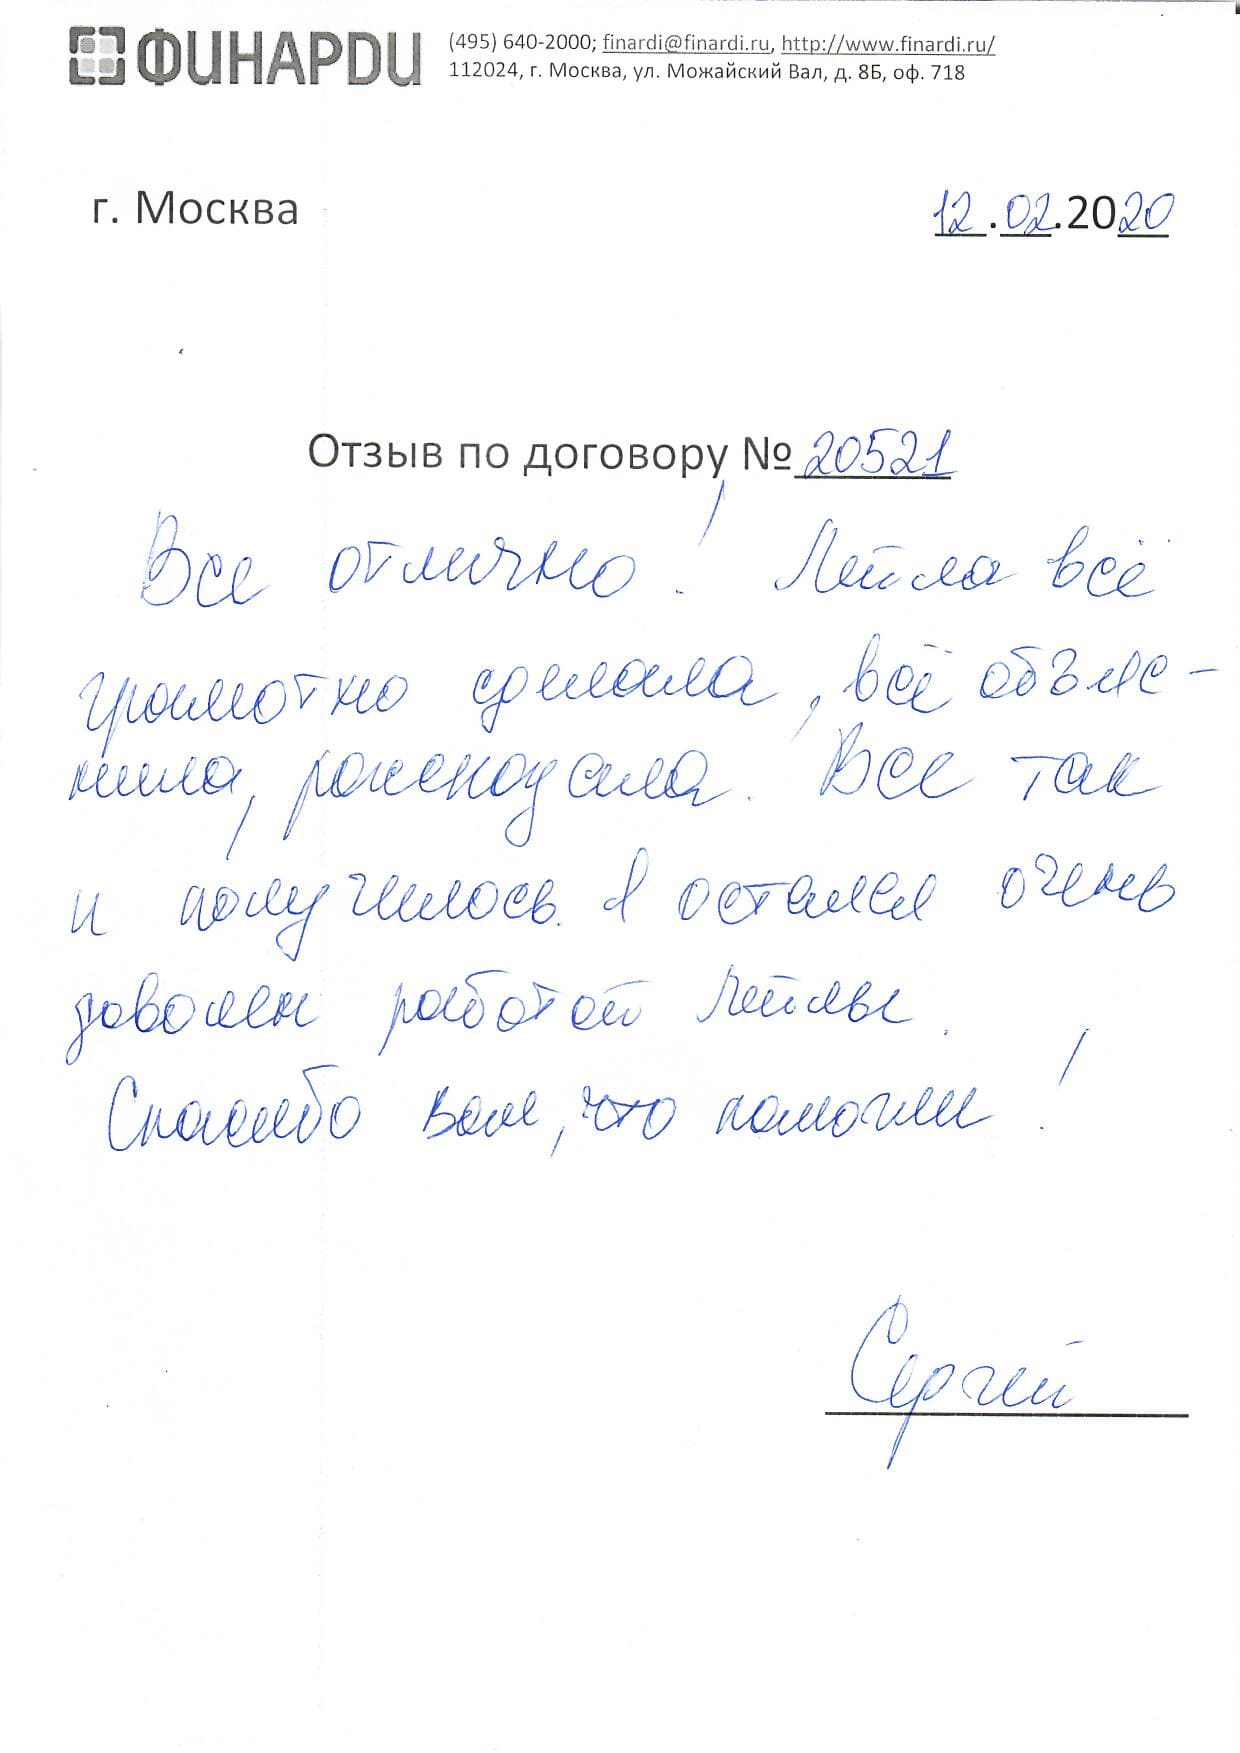 ФИНАРДИ
(495) 640-2000; finardi@finardi.ru, http://www.finardi.ru/
112024, г. Москва, ул. Можайский Вал, д. 8Б, оф. 718
г. Москва 12.02.2020
Отзыв по договору № 20521
Все отлично! Лейла всё
грамотно сделала, всё объяс-
нила, рассказала. Все так
и получилось. Я остался очень
доволен работой Лейлы.
Спасибо вам, что помогли!
Сергей